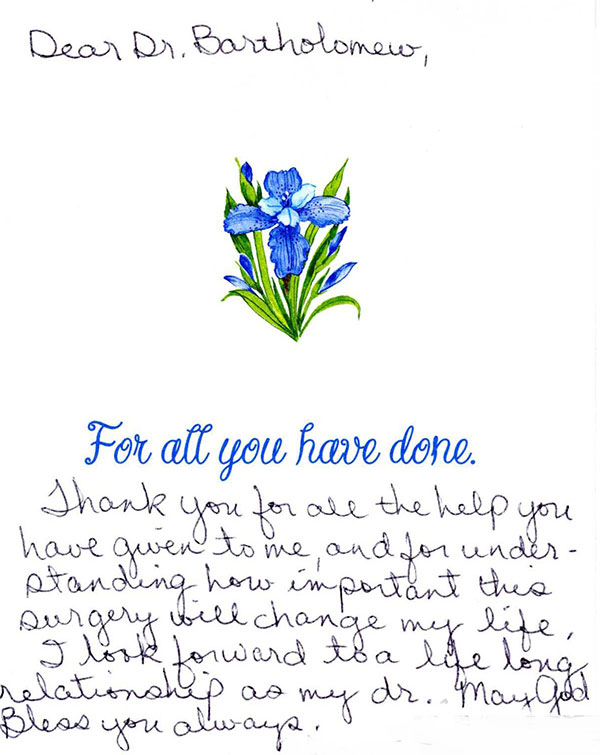 Dear Dr. Bartholomew,
For all you have done.
Thank you for all the help you
have given to me, and for under-
standing how important this
surgery will change my life.
I look forward to a life long
relationship as my dr. May God
Bless you always.